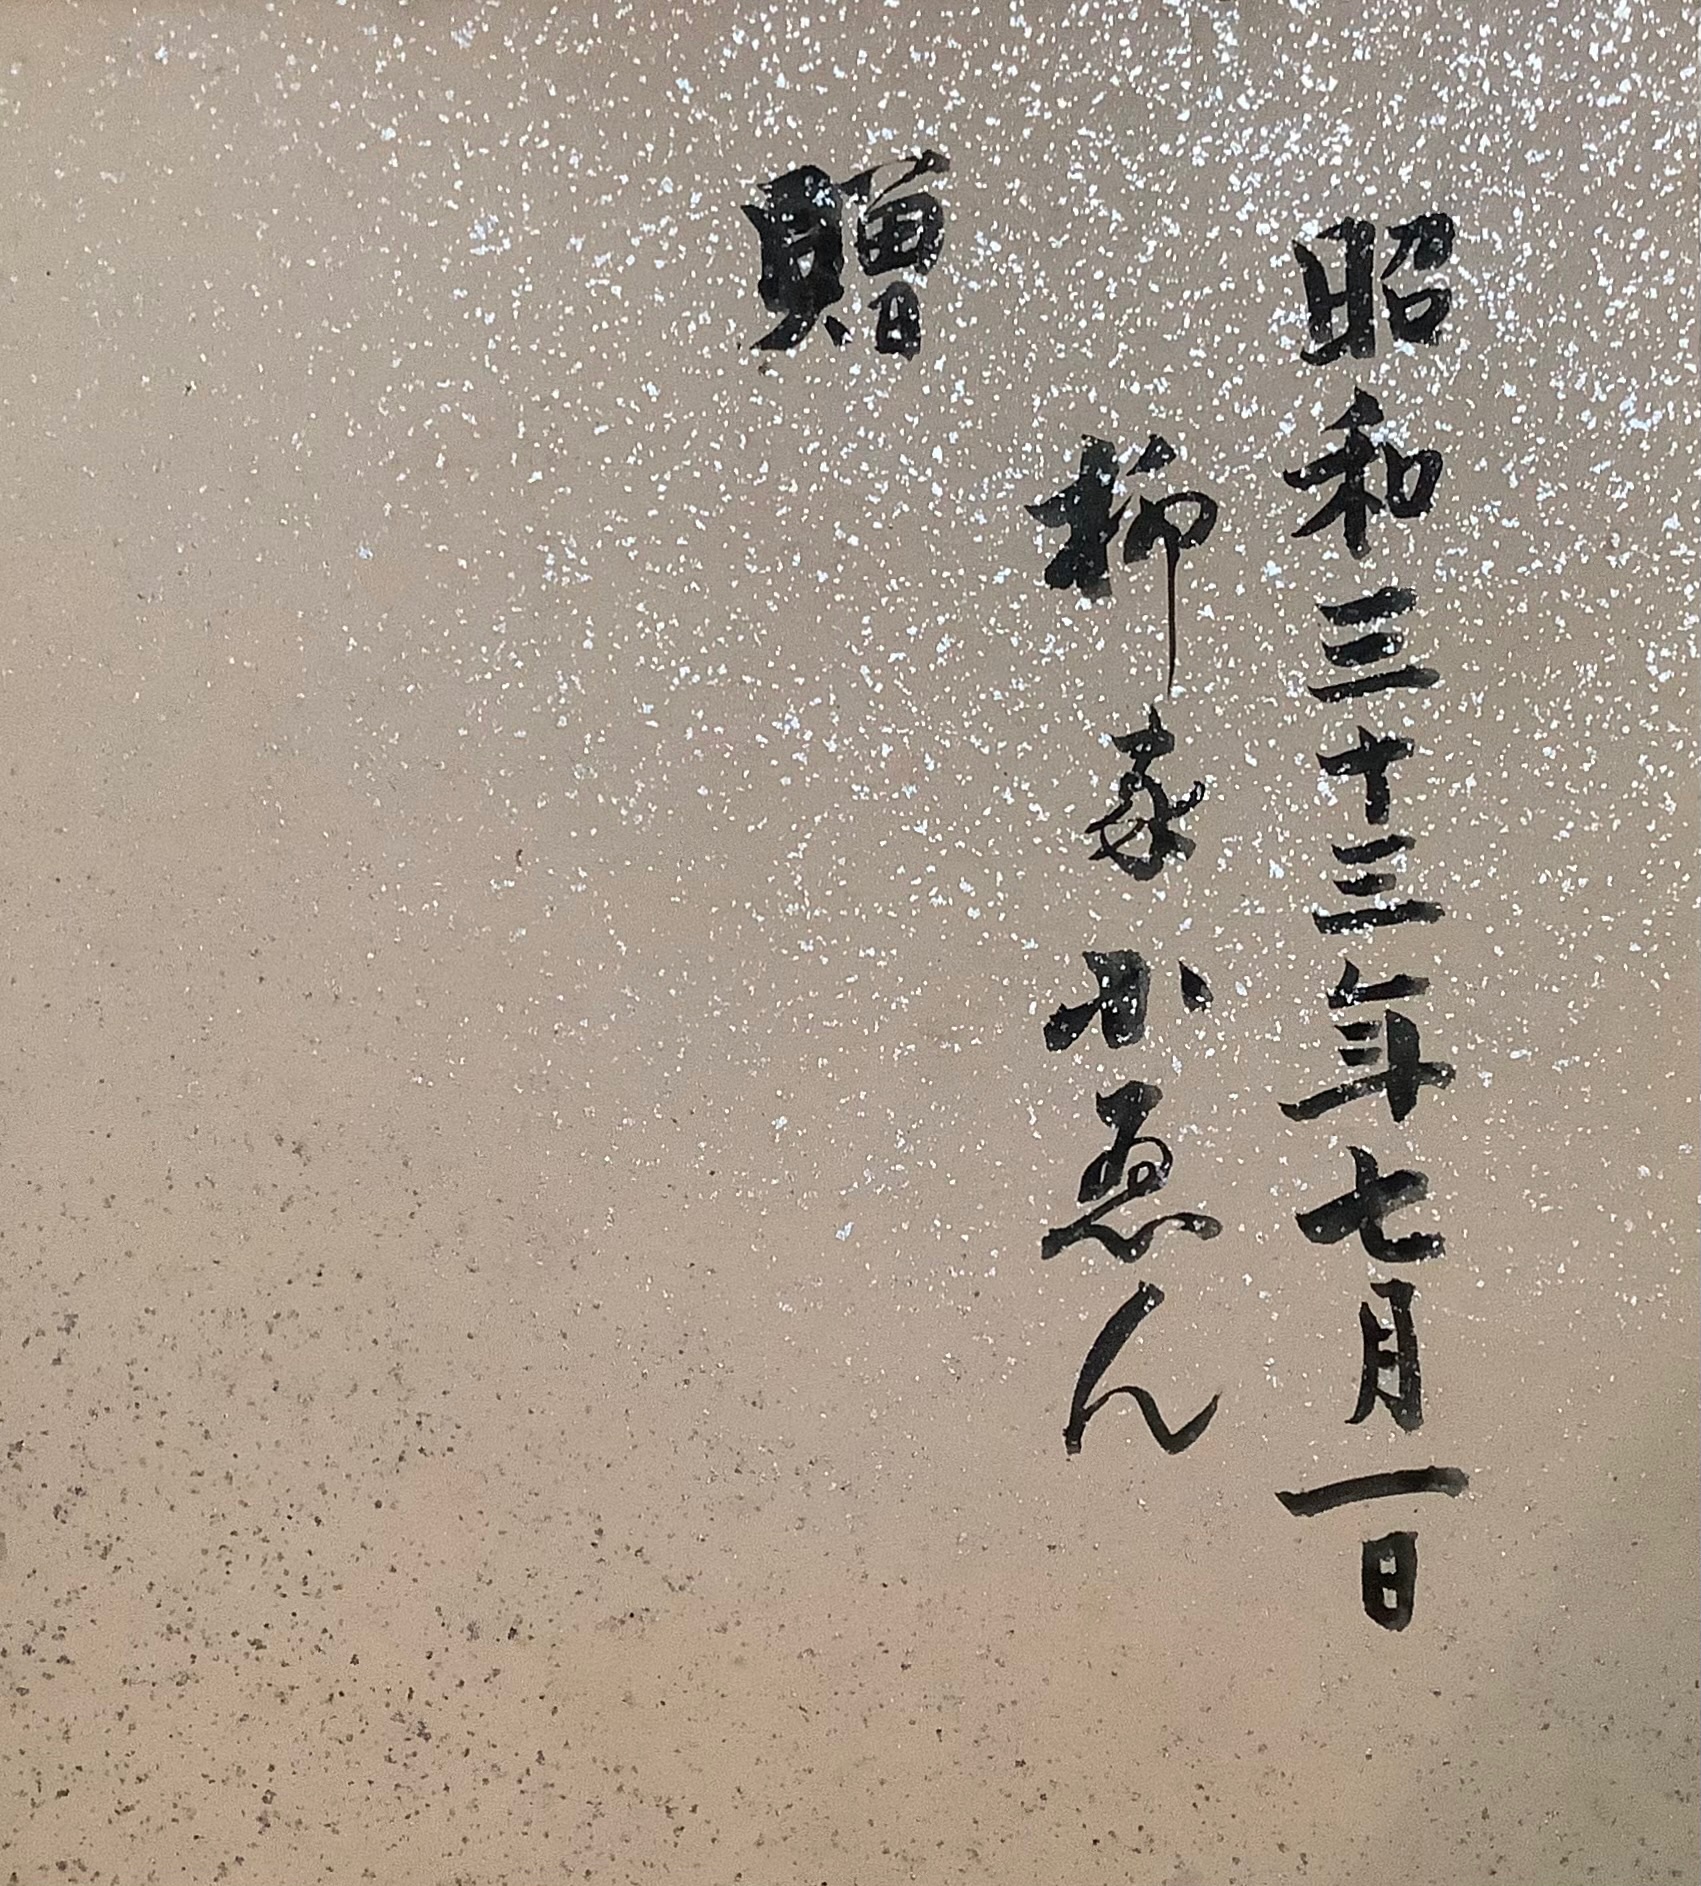 昭和三十三年七月一日
柳家小ゑん
贈